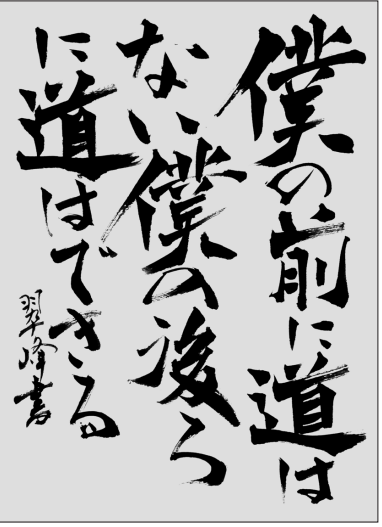 僕の前に道は
ない僕の後ろ
に道はできる
翠峰書